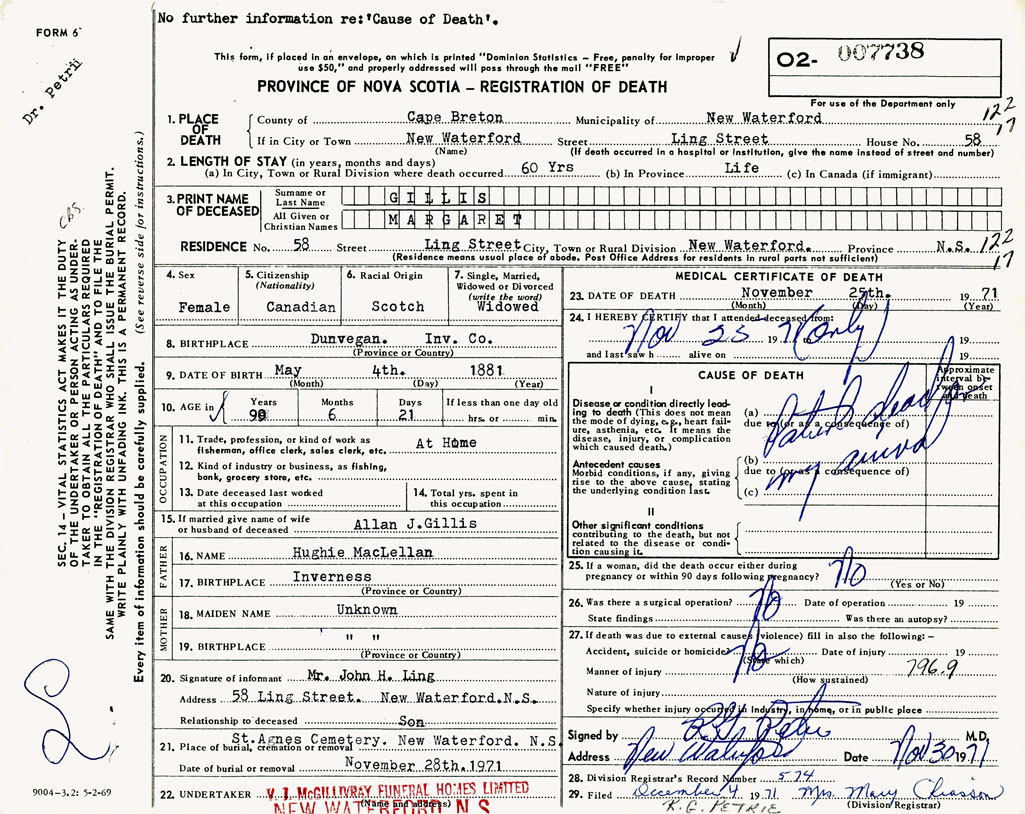 No further information re:'Cause of Death'.
FORM 6
Dr. Petrie
This form, if placed in an envelope, on which is printed "Dominion Statistics – Free, penalty for improper
use $50," and properly addressed will pass through the mail "FREE"
PROVINCE OF NOVA SCOTIA – REGISTRATION OF DEATH
O2- 007738
For use of the Department only
122
17
1. PLACE OF DEATH
County of Cape Breton Municipality of New Waterford
If in City or Town New Waterford Street Ling Street House No. 58
(Name) (If death occurred in a hospital or institution, give the name instead of street and number)
2. LENGTH OF STAY (in years, months and days)
(a) In City, Town or Rural Division where death occurred 60 Yrs (b) In Province Life (c) In Canada (if immigrant)
3. PRINT NAME OF DECEASED
Surname or Last Name GILLIS
All Given or Christian Names MARGARET
RESIDENCE No. 58 Street Ling Street City, Town or Rural Division New Waterford. Province N.S. 122
(Residence means usual place of abode. Post Office Address for residents in rural parts not sufficient) 17
4. Sex
Female
5. Citizenship
(Nationality)
Canadian
6. Racial Origin
Scotch
7. Single, Married,
Widowed or Divorced
(write the word)
Widowed
8. BIRTHPLACE Dunvegan. Inv. Co.
(Province or Country)
9. DATE OF BIRTH May 4th. 1881
(Month) (Day) (Year)
10. AGE in Years Months Days If less than one day old
90 6 21 hrs. or min.
OCCUPATION
11. Trade, profession, or kind of work as
fisherman, office clerk, sales clerk, etc. At Home
12. Kind of industry or business, as fishing,
bank, grocery store, etc.
13. Date deceased last worked
at this occupation
14. Total yrs. spent in
this occupation
15. If married give name of wife
or husband of deceased Allan J.Gillis
FATHER
16. NAME Hughie MacLellan
17. BIRTHPLACE Inverness
(Province or Country)
MOTHER
18. MAIDEN NAME Unknown
19. BIRTHPLACE " "
(Province or Country)
20. Signature of informant Mr. John H. Ling
Address 58 Ling Street. New Waterford.N.S.
Relationship to deceased Son
21. Place of burial, cremation or removal St.Agnes Cemetery. New Waterford. N.S
Date of burial or removal November 28th.1971
22. UNDERTAKER V. J. McGILLIVRAY FUNERAL HOMES LIMITED
(Name and address)
NEW WATERFORD N S
MEDICAL CERTIFICATE OF DEATH
23. DATE OF DEATH November 25th. 1971
(Month) (Day) (Year)
24. I HEREBY CERTIFY that I attended deceased from:
Nov 25 1971 to only 19
and last saw h alive on 19
CAUSE OF DEATH
Approximate
interval be-
tween onset
and death
I
Disease or condition directly lead-
ing to death (This does not mean
the mode of dying, e.g., heart fail-
ure, asthenia, etc. It means the
disease, injury, or complication
which caused death.)
(a)
due to (or as a consequence of)
Antecedent causes
Morbid conditions, if any, giving
rise to the above cause, stating
the underlying condition last.
(b)
due to (or as a consequence of)
(c)
my arrival
II
Other significant conditions
contributing to the death, but not
related to the disease or condi-
tion causing it.
25. If a woman, did the death occur either during
pregnancy or within 90 days following pregnancy? No
(Yes or No)
26. Was there a surgical operation? No Date of operation 19
State findings Was there an autopsy?
27. If death was due to external causes (violence) fill in also the following: –
Accident, suicide or homicide? No Date of injury 19
(State which)
Manner of injury 796.9
(How sustained)
Nature of injury
Specify whether injury occurred in Industry, in home, or in public place
Signed by R G Petrie M.D.
Address New Waterford Date Nov 30 1971
28. Division Registrar's Record Number 574
29. Filed December 4 1971 Mrs. Mary Chiasson
(Division Registrar)
R.G. PETRIE
SEC. 14 – VITAL STATISTICS ACT MAKES IT THE DUTY
OF THE UNDERTAKER OR PERSON ACTING AS UNDER-
TAKER TO OBTAIN ALL THE PARTICULARS REQUIRED
IN THE "REGISTRATION OF DEATH" AND TO FILE THE
SAME WITH THE DIVISION REGISTRAR WHO SHALL ISSUE THE BURIAL PERMIT.
WRITE PLAINLY WITH UNFADING INK. THIS IS A PERMANENT RECORD.
Every item of information should be carefully supplied. (See reverse side for instructions.)
9004-3.2: 5-2-69